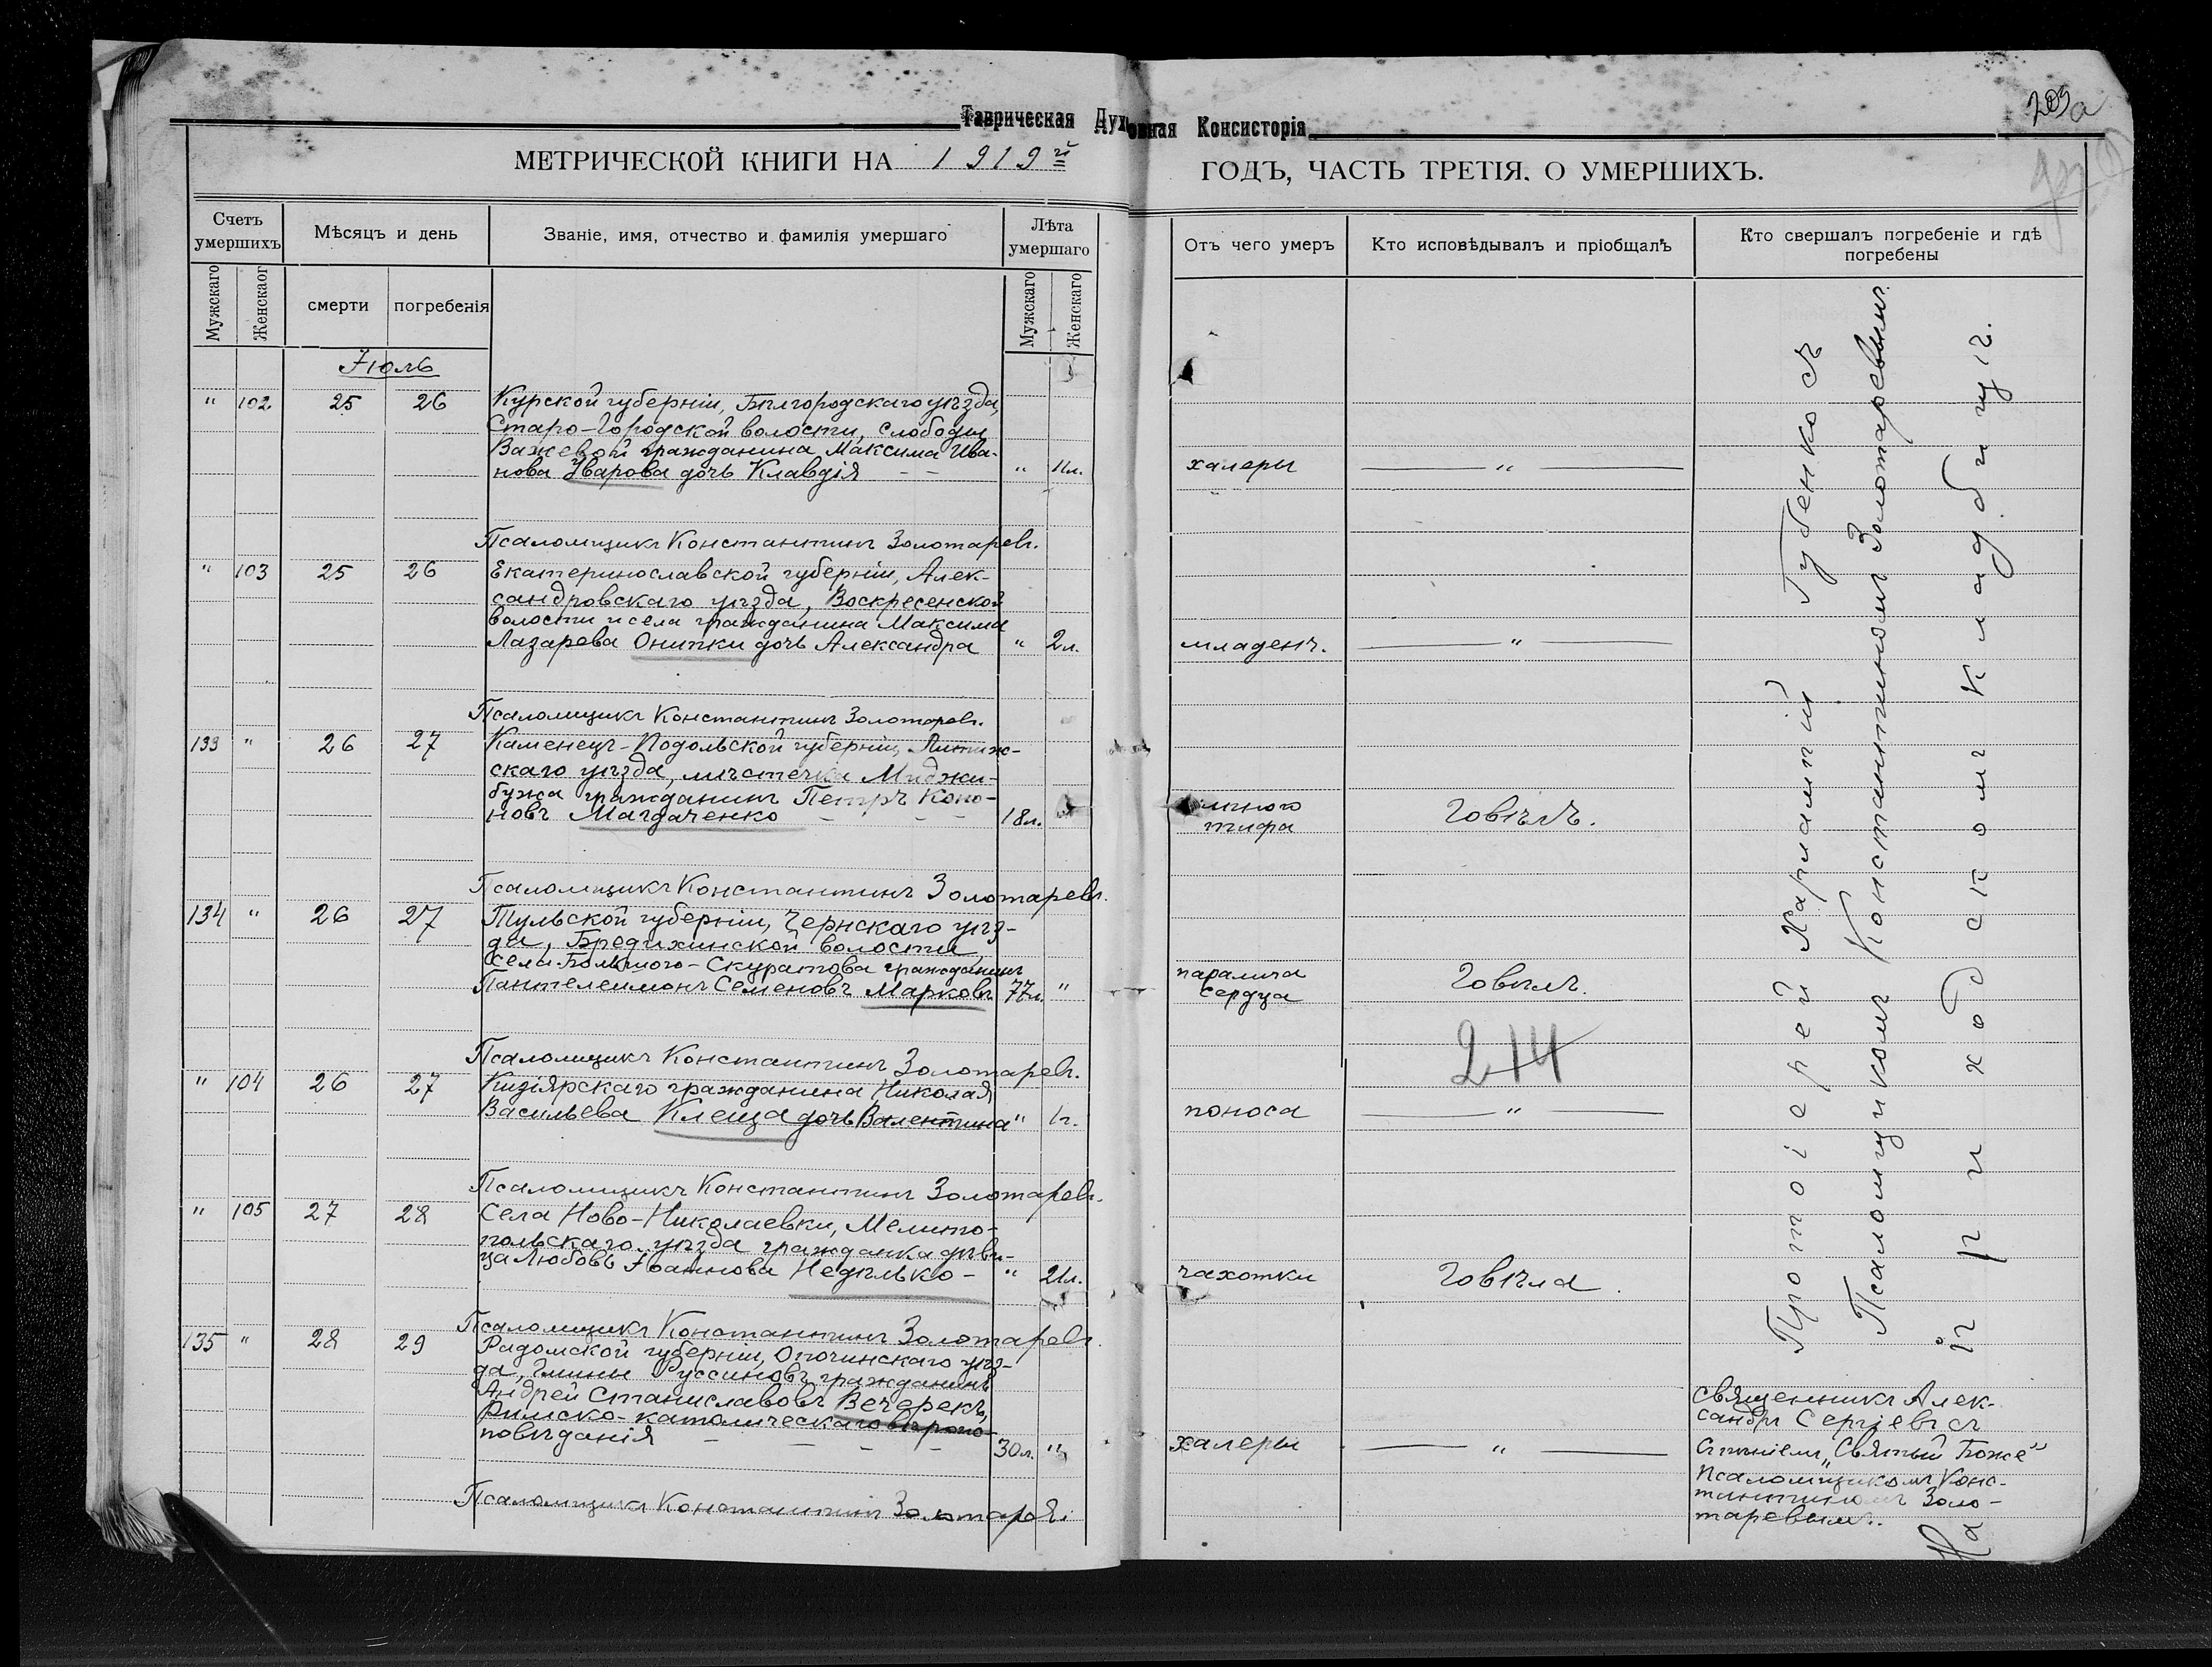 209 а
Таврическая Духовная Консисторія
МЕТРИЧЕСКОЙ КНИГИ НА 1919й ГОДЪ, ЧАСТЬ ТРЕТІЯ. О УМЕРШИХЪ.
Счетъ умершихъ
Мѣсяцъ и день
Званіе, имя, отчество и фамилія умершаго
Лѣта умершаго
Отъ чего умеръ
Кто исповѣдывалъ и пріобщалъ
Кто свершалъ погребеніе и гдѣ погребены
Мужскаго
Женскаог
смерти
погребенія
Мужскаго
Женскаго
Іюль
" 102 25 26 Курской губерніи, Бѣлгородскаго уѣзда,
Старо-Городской волости, слободы
Важевой гражданина Максима Ива-
нова Уварова дочь Клавдія " 11л. халеры "
Псаломщикъ Константинъ Золотаревъ.
" 103 25 26 Екатеринославской губерніи, Алек-
сандровскаго уѣзда, Воскресенской
волости и села гражданина Максима
Лазарева Онипки дочь Александра " 2л. младенч. "
Псаломщикъ Константинъ Золотаревъ.
133 " 26 27 Каменецъ-Подольской губерніи,
скаго уѣзда, мѣстечка Миджи-
бужа гражданинъ Петръ Коно-
новъ Магдаченко 18л. тифа Говѣлъ.
Псаломщикъ Константинъ Золотаревъ.
134 " 26 27 Тульской губерніи, Чернскаго уѣз-
да, Бредихинской волости,
села Большого-Скуратова гражданинъ
Пантелеимонъ Семеновъ Марковъ 77л. " паралича сердца Говѣлъ.
214
Псаломщикъ Константинъ Золотаревъ.
" 104 26 27 Кизіярскаго гражданина Николая
Васильева Клеща дочь Валентина " 1г. поноса "
Псаломщикъ Константинъ Золотаревъ.
" 105 27 28 Села Ново-Николаевки, Мелито-
польскаго уѣзда гражданка дѣви-
ца Любовь Іоаннова Недѣлько - " 21л. чахотки Говѣла
Псаломщикъ Константинъ Золотаревъ.
135 " 28 29 Радомской губерніи, Опочинскаго уѣз-
да, Гмины Руссиновъ гражданинъ
Андрей Станиславовъ Вечерекъ,
Римско-католическаго вѣроис-
повѣданія 30л. " халеры "
Псаломщикъ Константинъ Золотаревъ.
Протоіерей Харлампій Губенко съ
Псаломщикомъ Константиномъ Золотаревымъ
На приходскомъ кладбищѣ.
Священникъ Алек-
сандръ Сергіевъ съ
пѣніемъ „Святый Боже"
Псаломщикомъ Конс-
тантиномъ Золо-
таревымъ.